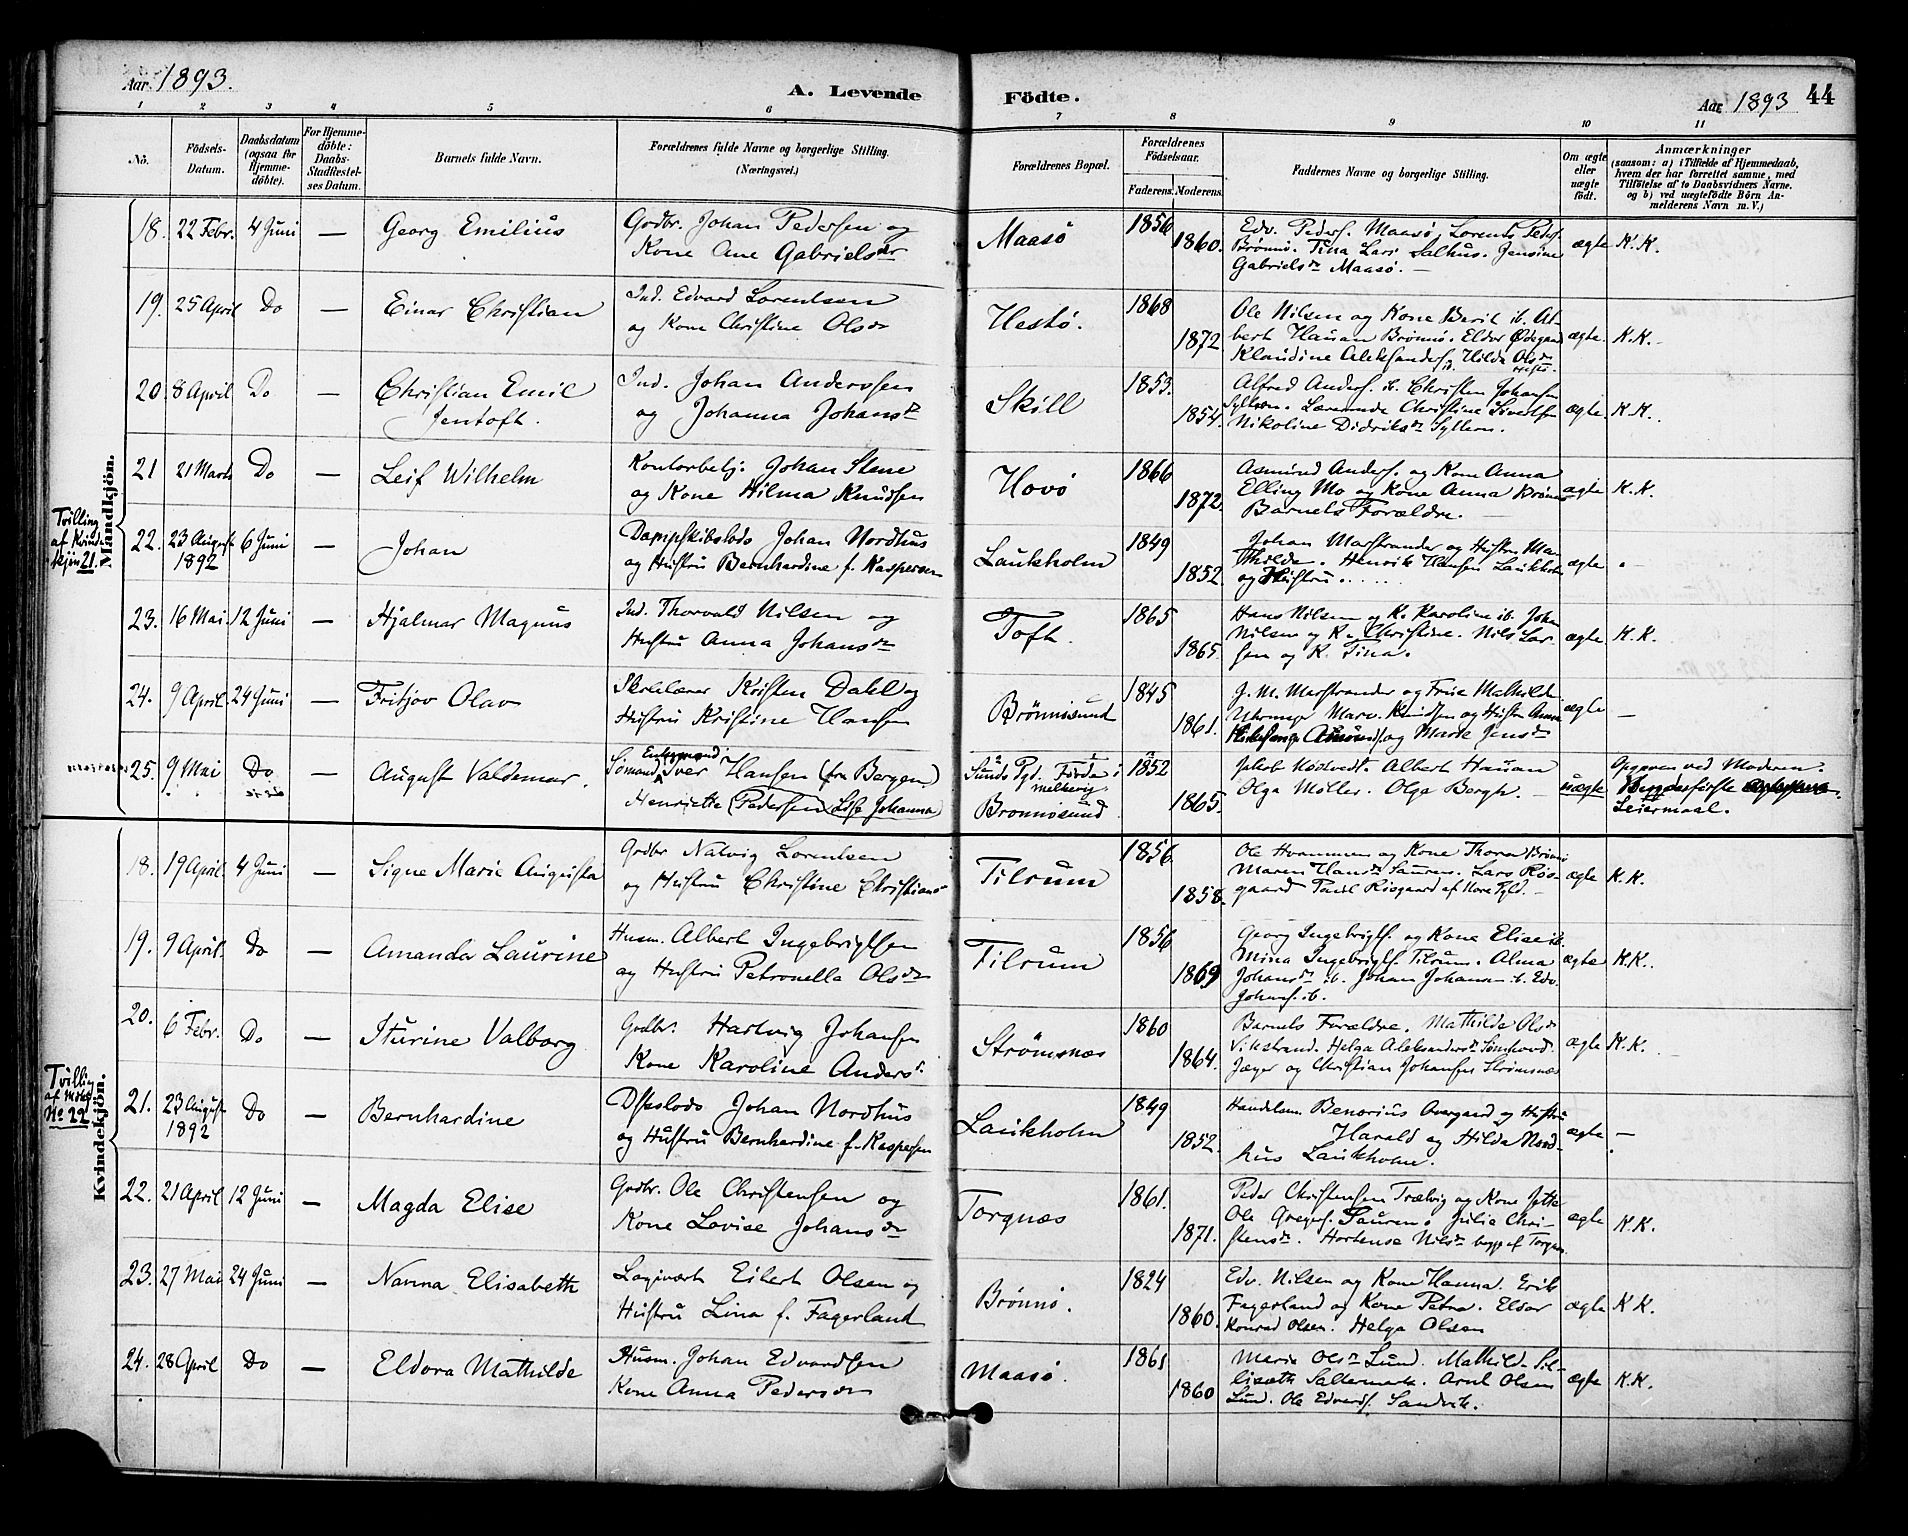 Aar 1893.
A. Levende Födte.
Aar 1893 44
1 2 3 4 5 6 7 8 9 10 11
No.
Födsels-Datum.
Daabsdatum (ogsaa for Hjemme-döbte).
For Hjemme-döbte: Daabs-Stadfæstel-ses Datum.
Barnets fulde Navn.
Forældrenes fulde Navne og borgerlige Stilling. (Næringsvei.)
Forældrenes Bopæl.
Forældrenes Födselsaar.
Faderens. Moderens.
Faddernes Navne og borgerlige Stilling.
Om ægte eller uægte födt.
Anmærkninger
(saasom: a) i Tilfælde af Hjemmedaab, hvem der har forrettet samme, med Tilföielse af to Daabsvidners Navne. og b) ved uægtefödte Börn Anmelderens Navn m. V.)
Mandkjön.
18. 22 Febr. 4 Juni — Georg Emilius
Godbr. Johan Pedersen og
Kone Ane Gabrielsdr
Maasö 1856 1860.
Edv. Peders. Maasö, Lorents Peders.
Brönnö. Tina Lars. Salhus. Jensine
Gabrielsdr Maasö. —
ægte K.K.
19. 25 April Do — Einar Christian
Ind. Edvard Lorentsen
og Kone Christine Olsdr
Hestö. 1868 1872
Ole Nilsen og Kone Berit ib. Al-
bert Hauan Brönnö. Eldor Ödegaard
Klaudine Aleksanders. ib. Hilda Olsdr
ægte. K.K.
20. 8 April Do — Christian Emil
Jentoft.
Ind. Johan Anderssen
og Johanna Johansdr
Skill 1853. 1854.
Alfred Anders. ib. Christen Johansen
Lærerinde Christine Sivertsen
Nikoline Didriksdr Sylteren.
ægte K.K.
21 21 Marts Do — Leif Wilhelm
Kontorbetj. Johan Stene
og Kone Hilma Knudsen
Hovö 1866 1872.
Asmund Anders. og Kone Anna
Elling Mo og Kone Anna Brönnö
Barnets Forældre.
ægte K.K.
Tvilling
af Kvinde-
kjön 21.
22. 23 August 6 Juni — Johan
1892
Dampskibslods Johan Nordhus
og Hustru Bernhardine f. Kaspersen
Laukholm 1849 1852.
Johan Marstrander og Hustru Ma-
thilde. Henrik Hansen Laukholm
og Hustru. .....
ægte —
23. 16 Mai 12 Juni — Hjalmar Magnus
Ind. Thorvald Nilsen og
Hustru Anna Johansdr
Toft. 1865 1865.
Hans Nilsen og K. Karoline ib. Johan
Nilsen og K. Christine. Nils Lar-
sen og K. Tina.
ægte K.K.
24. 9 April. 24 Juni — Fritjov Olav
Skolelærer Kristen Dahl og
Hustru Kristine Hansen
Brönnösund 1845 1861.
J. M. Marstrander og Frue Mathilde
Marv. Knudsen og Hustru Anna
og Marie Jensdr
ægte —
25. 9 Mai Do — August Valdemar.
Enkemand
Sömand Iver Hansen (fra Bergen)
Henriette Pedersen Lise Johanna
Sunds Pgd. Förde i
Brönnösund
1852 1865.
Jakob Nödvedt. Albert Hauan
Olga Möller. Olga Bergh. —
uægte
Opgiven ved Moderen.
Leiermaal.
Kvindekjön.
18. 19 April. 4 Juni — Signe Marie Augusta
Godbr Natvig Lorentsen
og Hustru Christine Christians
Tilrum 1856 1858.
Ole Hvammen og Kone Thora Brönnö
Maren Hansdr Sauren. Lars Ris-
gaard Paul Risgaard af Horn Tgld. —
ægte K.K.
19. 9 April. Do — Amanda Laurine
Husm. Albert Ingebrigtsen
og Hustru Petronella Olsdr
Tilrum 1856 1869
Georg Ingebrigts. og Kone Elise ib.
Mina Ingebrigts. Tilrum. Alma
Johansdr ib. Johan Johansen ib. Edv.
Johans. ib.
ægte K.K.
20. 6 Febr. Do — Iturine Valborg
Godbr. Hartvig Johansen
Kone Karoline Anders.
Strömsnæs 1860 1864.
Barnets Forældre. Mathilde Olsdr
Vikstrand. Helga Aleksandersdr
Jæger og Christian Johansen Strömsnæs
ægte K.K.
Tvilling
No 22
21. 23 August Do — Bernhardine
1892
Dskslods Johan Nordhus
og Hustru Bernhardine f. Kaspersen
Laukholm 1849 1852.
Handelsm. Benorius Overgaard og Hustru
Harald og Hilda Nord-
hus Laukholm.
ægte —
22. 21 April 12 Juni — Magda Elise
Godbr. Ole Christensen og
Kone Lovise Johansdr
Torgnæs 1861. 1871.
Peder Christensen Trælvig og Kone Jette
Ole Gregers. Sauren. Julia Chri-
stensdr. Hortense Nilsdr begge af Torgnæs
ægte K.K.
23. 27 Mai 24 Juni — Nanna Elisabeth
Logivært Eilert Olsen og
Hustru Lina f. Fagerland
Brönnö. 1824 1860.
Edv. Nilsen og Kone Hanna. Erik
Fagerland og Kone Petra. Eldor
Konrad Olsen. Helga Olsen
ægte K.K.
24. 28 April Do — Eldora Mathilde
Husm. Johan Edvardsen
Kone Anna Pedersdr
Maasö. 1861 1860
Marie Olsdr Lund. Mathilde
Arnt Olsen
Lund. Ole Edvards. Sandvik.
ægte K.K.